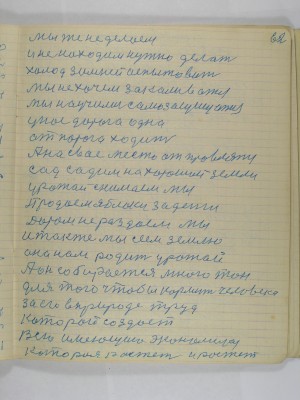 62
мы же не делаем
и не находим нужно делат
холод зимний испытоват
мы нехочем закаливатся
мы научили самозащищатся
у нас дорога одна
от порога ходит
А на свае место отправлят
сад садим на хорошей земли
урожай снимаем мы
Продаем яблоки за денги
Даром не раздаем мы
и также мы сеем землю
она нам родит урожай
А он собирается много тон
для того чтобы кормит человека
за его в природе труд
которой создает
Всю имеющию экономику
Которая растет и растет